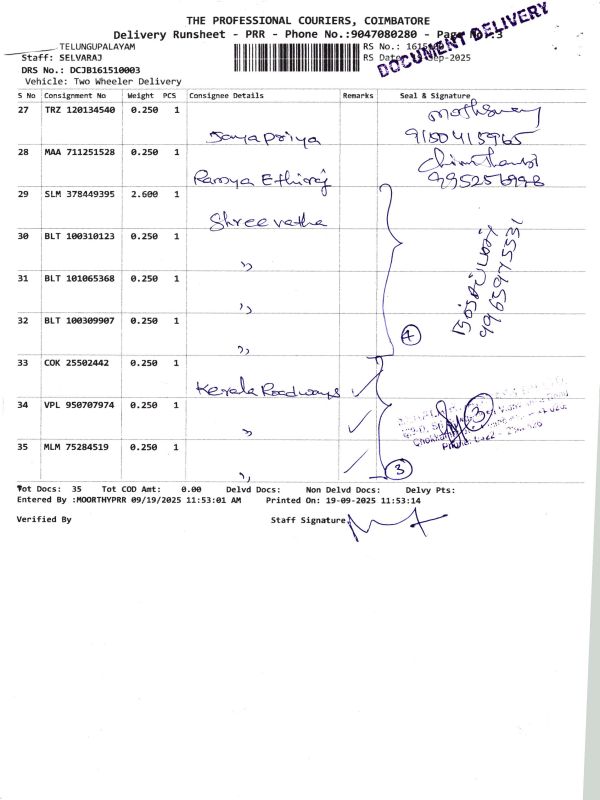 THE PROFESSIONAL COURIERS, COIMBATORE
Delivery Runsheet - PRR - Phone No.:9047080280 - Page No.:3
TELUNGUPALAYAM
RS No.: 1615
Staff: SELVARAJ
RS Date: Sep-2025
DOCUMENT DELIVERY
DRS No.: DCJB161510003
Vehicle: Two Wheeler Delivery
S No Consignment No Weight PCS Consignee Details Remarks Seal & Signature
27 TRZ 120134540 0.250 1
Jayapriya 9150415965
28 MAA 711251528 0.250 1
Ramya Ethiraj
29 SLM 378449395 2.600 1
Shreevatha
30 BLT 100310123 0.250 1
"
31 BLT 101065368 0.250 1
"
9965975531
32 BLT 100309907 0.250 1
" 4
33 COK 25502442 0.250 1
Kerala Roadways ✓
34 VPL 950707974 0.250 1
" ✓ 3
35 MLM 75284519 0.250 1
" ✓ 3
Tot Docs: 35 Tot COD Amt: 0.00 Delvd Docs: Non Delvd Docs: Delvy Pts:
Entered By :MOORTHYPRR 09/19/2025 11:53:01 AM Printed On: 19-09-2025 11:53:14
Verified By Staff Signature